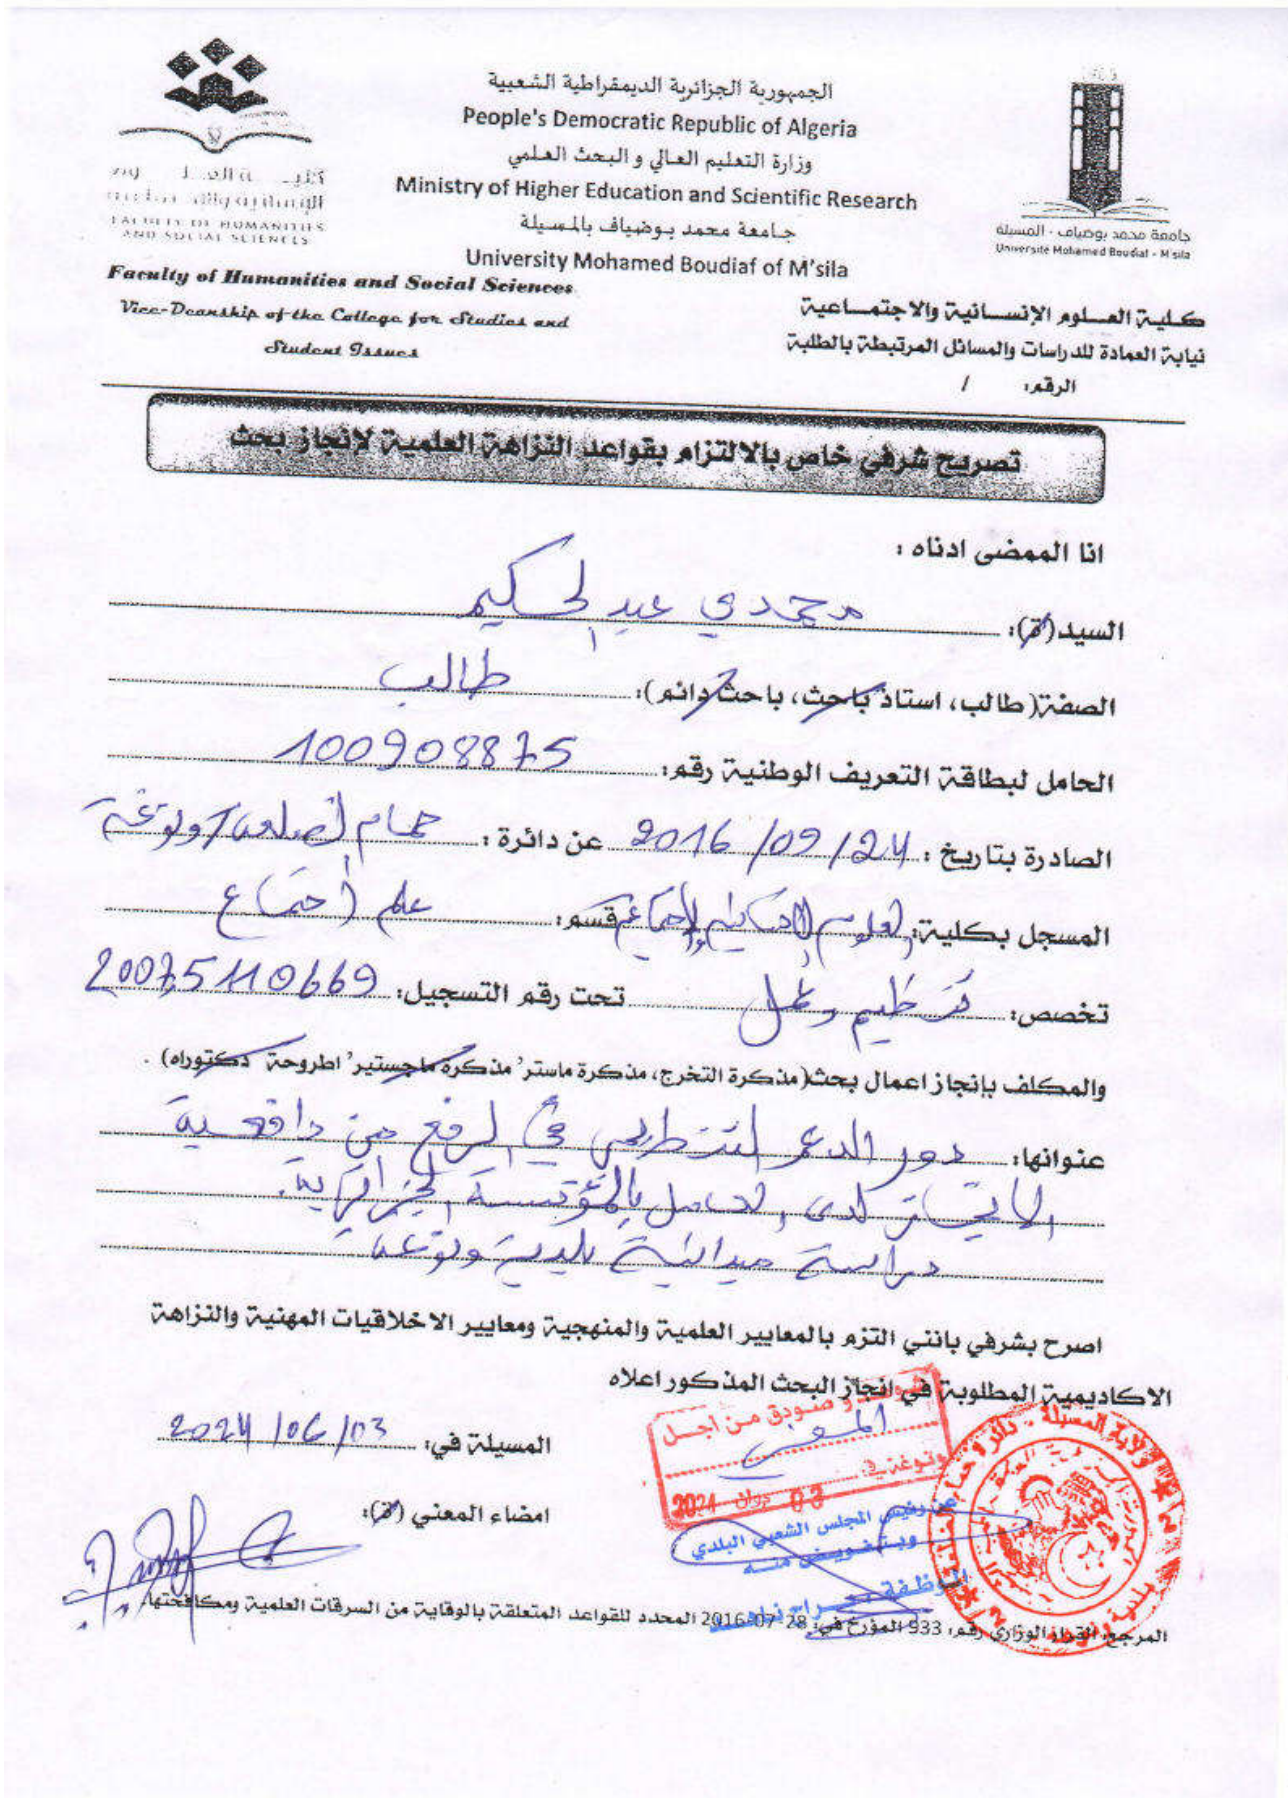 الجمهورية الجزائرية الديمقراطية الشعبية
People's Democratic Republic of Algeria
وزارة التعليم العالي و البحث العلمي
Ministry of Higher Education and Scientific Research
جامعة محمد بوضياف بالمسيلة
University Mohamed Boudiaf of M'sila
FACULTY OF HUMANITIES
AND SOCIAL SCIENCES
جامعة محمد بوضياف - المسيلة
Université Mohamed Boudiaf - M'sila
Faculty of Humanities and Social Sciences
Vice-Deanship of the College for Studies and
Student Issues
كلية العلوم الإنسانية والاجتماعية
نيابة العمادة للدراسات والمسائل المرتبطة بالطلبة
الرقم: /
تصريح شرفي خاص بالالتزام بقواعد النزاهة العلمية لإنجاز بحث
انا الممضى ادناه :
السيد(ة): محمدي عبد الحكيم
الصفة(طالب، استاذ باحث، باحث دائم): طالب
الحامل لبطاقة التعريف الوطنية رقم: 100908875
الصادرة بتاريخ : 2016/09/24 عن دائرة : حمام الضلعة / ونوغة
المسجل بكلية: العلوم الإنسانية والاجتماعية قسم: علم اجتماع
تخصص: تنظيم وعمل تحت رقم التسجيل: 20075110669
والمكلف بإنجاز اعمال بحث(مذكرة التخرج، مذكرة ماستر' مذكرة ماجستير' اطروحة دكتوراه) .
عنوانها: دور الدعم التنظيمي في الرفع من دافعية
الانجاز لدى العامل بالمؤسسة الجزائرية.
دراسة ميدانية بلدية ونوغة
اصرح بشرفي بانني التزم بالمعايير العلمية والمنهجية ومعايير الاخلاقيات المهنية والنزاهة
الاكاديمية المطلوبة في انجاز البحث المذكور اعلاه
المسيلة في: 2024/06/03
امضاء المعني (ة):
و صودق من أجل
المعني
ونوغة في
03 جوان 2024
عن رئيس المجلس الشعبي البلدي
وبتفويض منه
الموظفة
المرجع: القرار الوزاري رقم: 933 المؤرخ في: 28-07-2016 المحدد للقواعد المتعلقة بالوقاية من السرقات العلمية ومكافحتها.